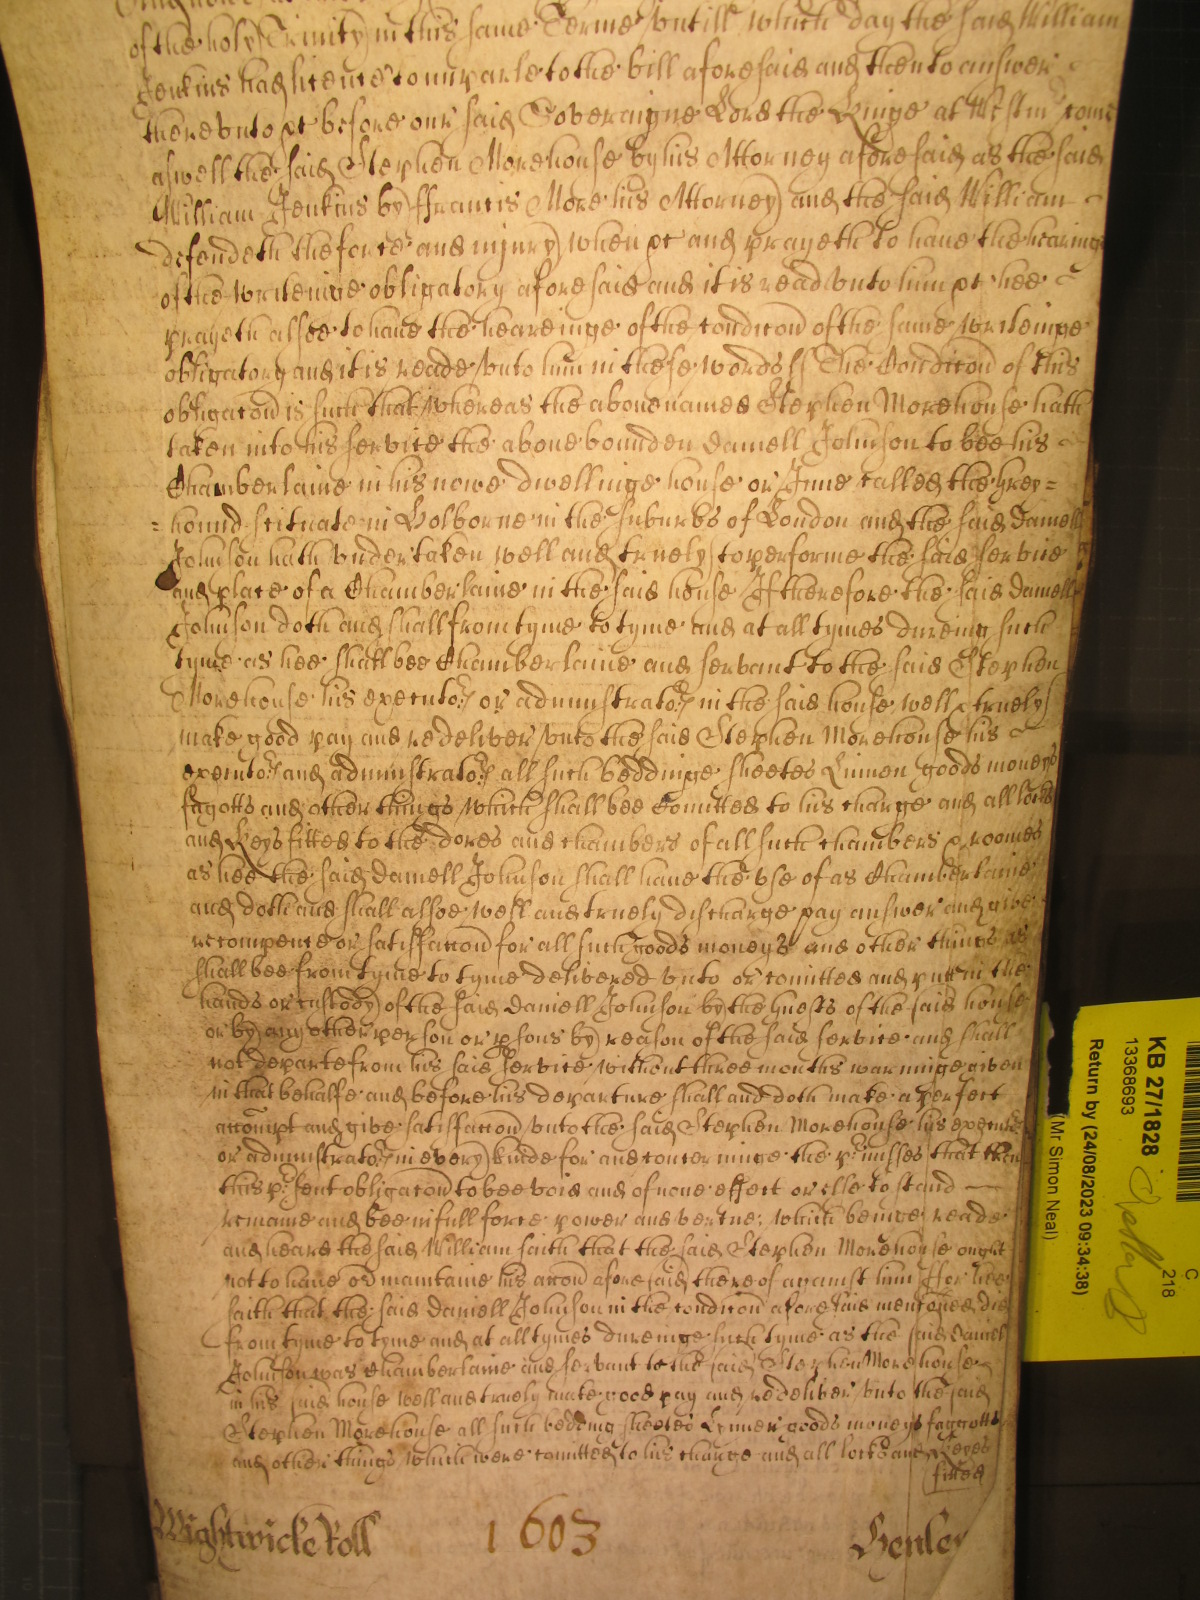 of the holy Trinity in this same Terme untill which day the said William
Jenkins had licence to imparle to the bill aforesaid and then to answer
thereunto &c before our said Soveraigne Lord the Kinge at Westm come
aswell the said Stephen Morehouse by his Attorney aforesaid as the said
William Jenkins by ffrancis More his Attorney and the said William
defendeth the force and injury when &c and prayeth to haue the hearing
of the writeinge obligatory aforesaid and it is read vnto him &c hee
prayeth alsoe to haue the heareinge of the condicon of the same writeinge
obligatory and it is reade vnto him in these words ss The Condicon of this
obligacon is such that whereas the abouenamed Stephen Morehouse hath
taken into his service the aboue bounden Daniell Johnson to bee his
Chamberlaine in his nowe dwellinge house or Inne called the Grey=
=hound scituate in Holborne in the suburbs of London and the said Daniell
Johnson hath vndertaken well and truely to performe the said service
and place of a Chamberlaine in the said house If therefore the said Daniell
Johnson doth and shall from tyme to tyme and at all tymes dureing such
tyme as hee shall bee Chamberlaine and servant to the said Stephen
Morehouse his executors or administrators in the said house well & truely
make good pay and redeliver vnto the said Stephen Morehouse his
executors and administrators all such beddinge sheetes Linnen goods moneys
fagotts and other things which shall bee Comitted to his charge and all locks
and Keys fitted to the dores and chambers of all such chambers & roomes
as hee the said Daniell Johnson shall haue the vse of as Chamberlaine
and doth and shall alsoe well and truely discharge pay answer and give
recompence or satisfaccon for all such goods moneys and other things as
shall bee from tyme to tyme delivered vnto or comitted and putt in the
hands or custody of the said Daniell Johnson by the guests of the said house
or by any other person or psons by reason of the said service and shall
not departe from his said service without three months warninge given
in that behalfe and before his departure shall and doth make a perfect
accompt and give satisfaccon vnto the said Stephen Morehouse his executors
or administrators in every kinde for and concerninge the pimisses that then
this psent obligacon to bee void and of none effect or else to stand
remaine and bee in full force power and vertue; which beinge reade
and heard the said William saith that the said Stephen Morehouse ought
not to haue or maintaine his accon aforesaid thereof against him ffor hee
saith that the said Daniell Johnson in the condicon aforesaid menconed did
from tyme to tyme and at all tymes dureinge such tyme as the said Daniel
Johnson was Chamberlaine and servant to the said Stephen Morehouse
in his said house well and truely make good pay and redeliver vnto the said
Stephen Morehouse all such bedding sheetes Linnen goods moneys faggotts
and other things which were comitted to his charge and all locks and Keyes
fitted
Wightwicke Roll 1603 Henley
C
218
KB 27/1828
13368693
Return by (24/08/2023 09:34:38)
(Mr Simon Neal)